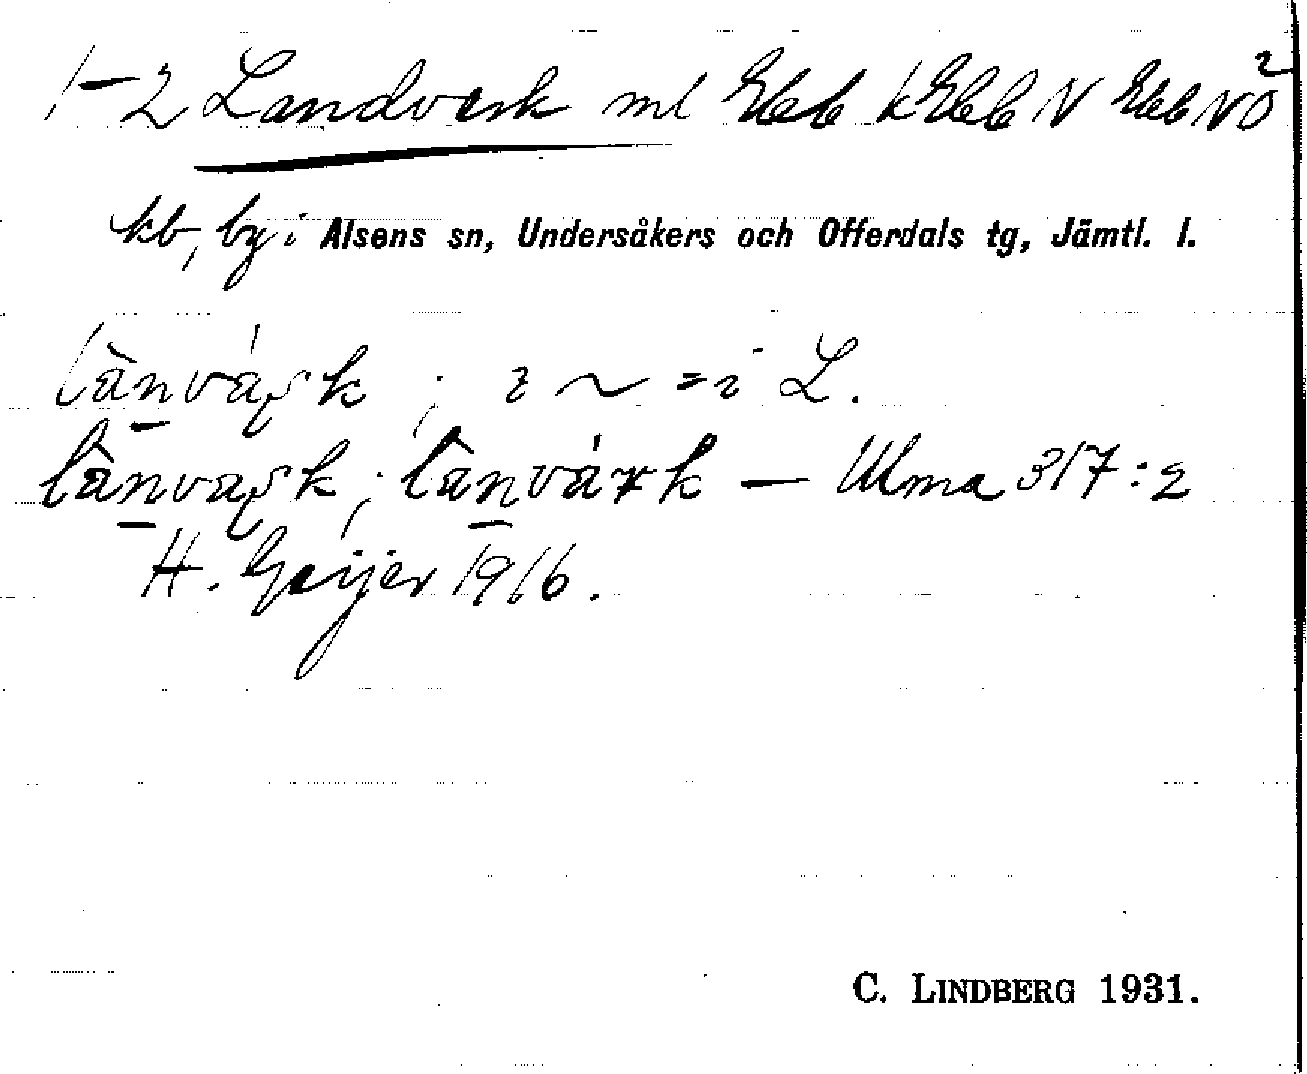 1-2 Landverk ml Ebb k Ebb N Ebb NÖ²
kb, by i Alsens sn, Undersåkers och Offerdals tg, Jämtl. l.
lànvárk ; i ~ =i L.
lànvark ; lànvárk — Ulma 317:2
H. Geijer 1916.
C. LINDBERG 1931.